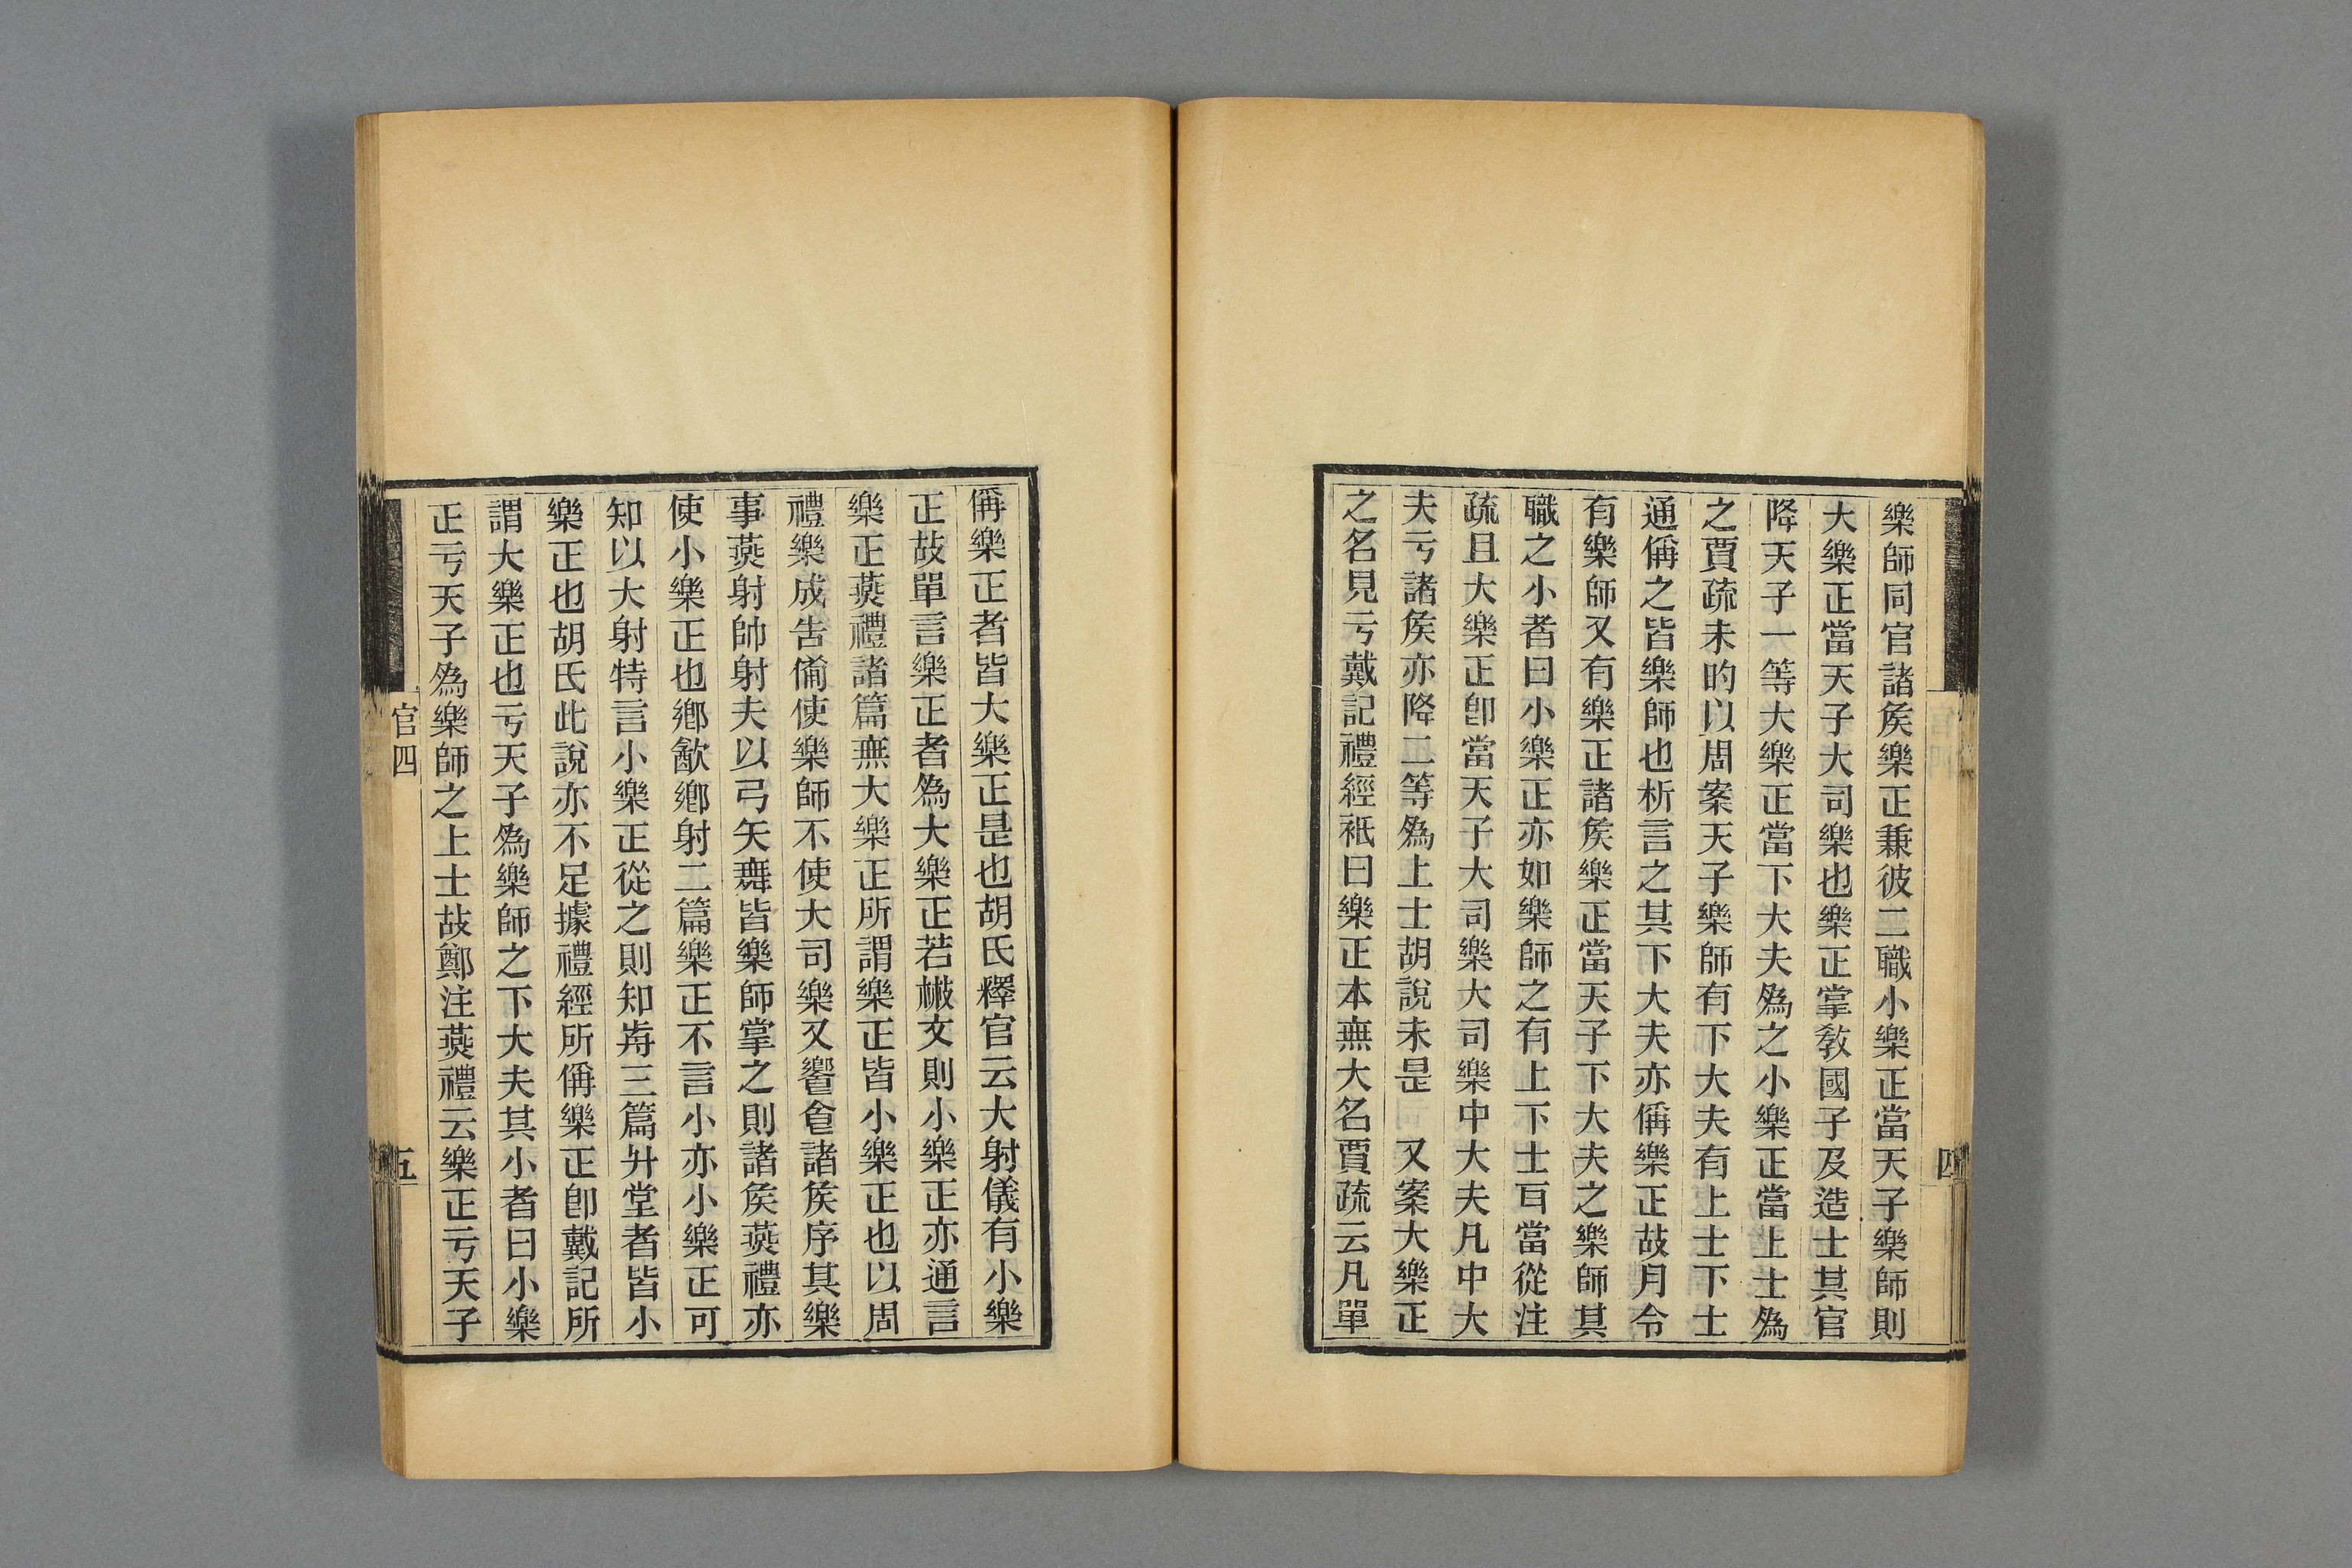 樂師同官諸矦樂正兼彼二職小樂正當天子樂師則
大樂正當天子大司樂也樂正掌敎國子及造士其官
降天子一等大樂正當下大夫爲之小樂正當上士爲
之賈疏未旳以周案天子樂師有下大夫有上士下士
通偁之皆樂師也析言之其下大夫亦偁樂正故月令
有樂師又有樂正諸矦樂正當天子下大夫之樂師其
職之小者曰小樂正亦如樂師之有上下士百當從注
疏且大樂正卽當天子大司樂大司樂中大夫凡中大
夫亏諸矦亦降二等爲上士胡說未是 又案大樂正
之名見亏戴記禮經祇曰樂正本無大名賈疏云凡單
偁樂正者皆大樂正是也胡氏釋官云大射儀有小樂
正故單言樂正者爲大樂正若㪔文則小樂正亦通言
樂正燕禮諸篇無大樂正所謂樂正皆小樂正也以周
禮樂成告僃使樂師不使大司樂又饗食諸矦序其樂
事燕射帥射夫以弓矢舞皆樂師掌之則諸矦燕禮亦
使小樂正也鄉飮鄉射二篇樂正不言小亦小樂正可
知以大射特言小樂正從之則知歬三篇升堂者皆小
樂正也胡氏此說亦不足據禮經所偁樂正卽戴記所
謂大樂正也亏天子爲樂師之下大夫其小者曰小樂
正亏天子爲樂師之上士故鄭注燕禮云樂正亏天子
官四
五
四